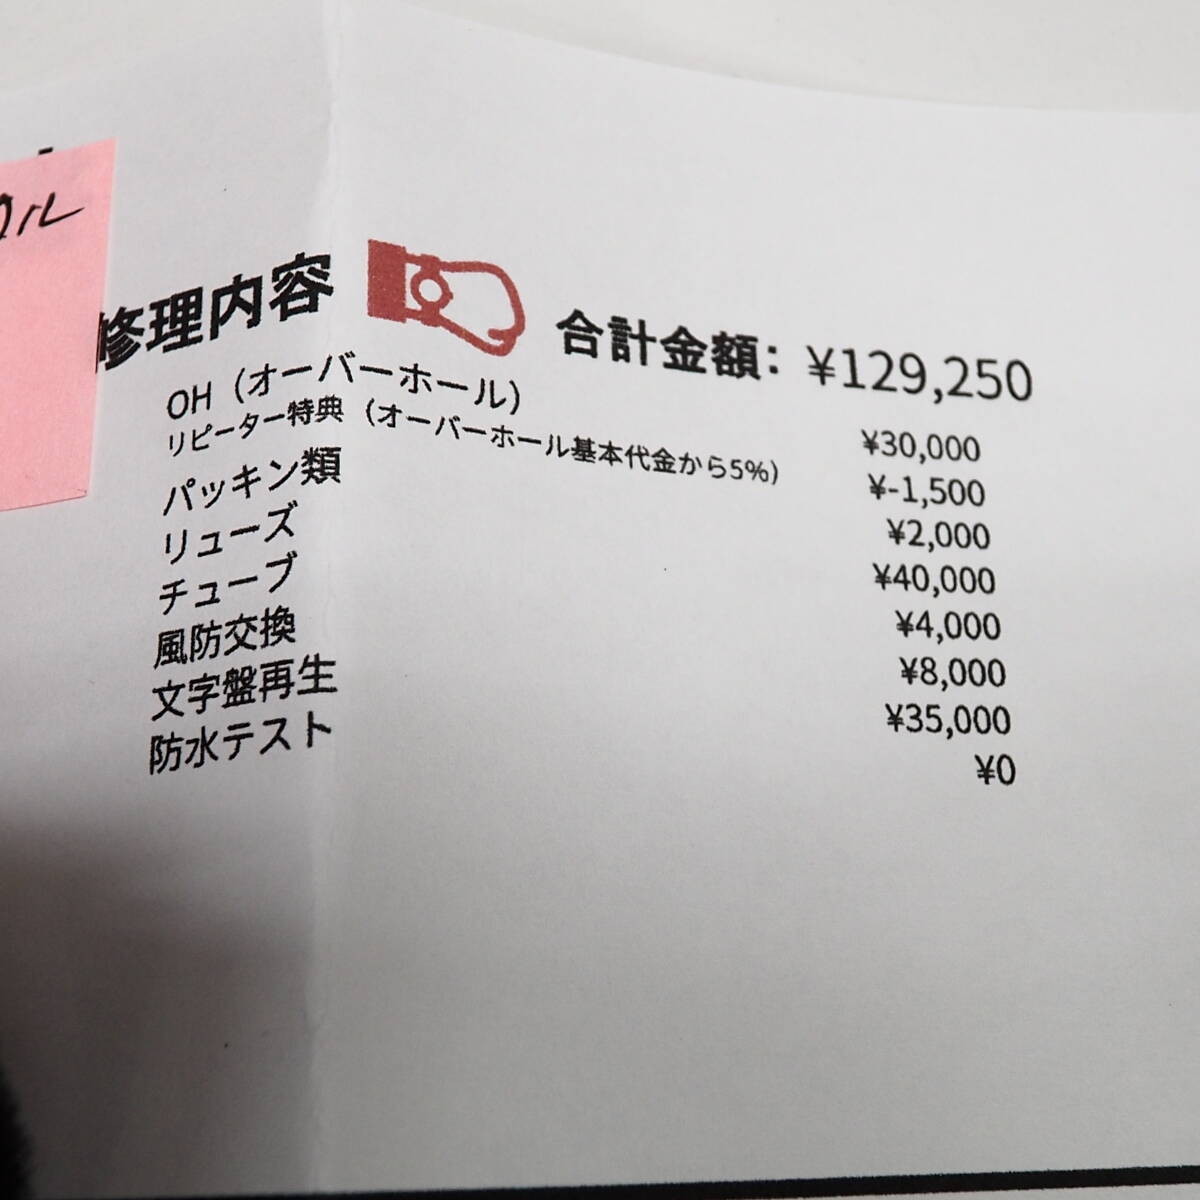 修理内容
合計金額: ¥129,250
OH（オーバーホール） ¥30,000
リピーター特典（オーバーホール基本代金から5%） ¥-1,500
パッキン類 ¥2,000
リューズ ¥40,000
チューブ ¥4,000
風防交換 ¥8,000
文字盤再生 ¥35,000
防水テスト ¥0